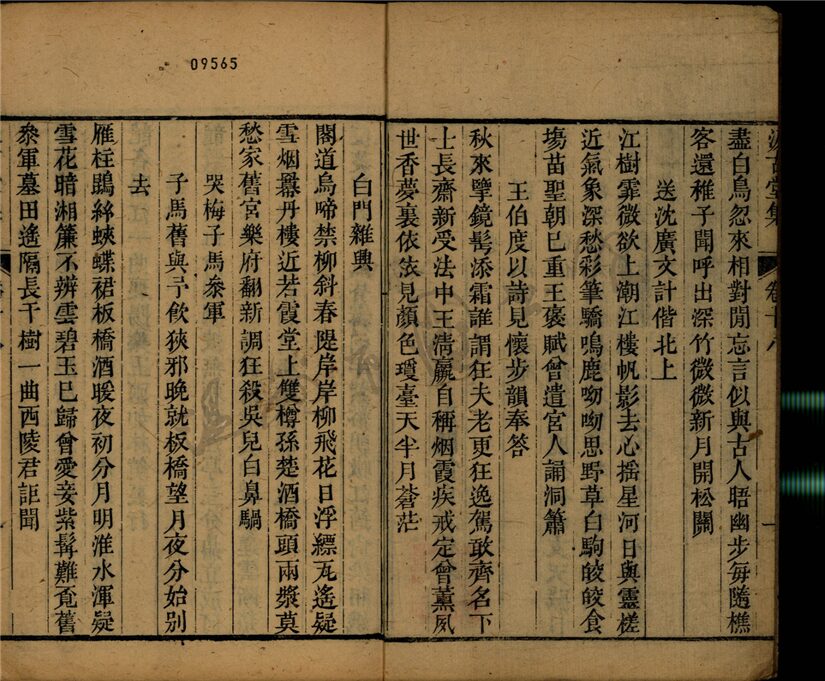 09565
汲古堂集 卷十八 一
盡白鳥忽來相對閒忘言似與古人晤幽步每隨樵
客還稚子聞呼出深竹微微新月開松關
送沈廣文計偕北上
江樹霏微欲上潮江樓帆影去心搖星河日與靈槎
近氣象深愁彩筆驕鳴鹿呦呦思野草白駒皎皎食
塲苗聖朝已重王褒賦曾遣宮人誦洞簫
王伯度以詩見懷步韻奉答
秋來擥鏡髩添霜誰謂狂夫老更狂逸駕敢齊名下
上長齋新受法中王淸羸自稱烟霞疾戒定曾薰夙
世香夢裏依依見顏色瓊臺天半月蒼茫
白門雜興
閣道烏啼禁柳斜春隄岸岸柳飛花日浮縹瓦遙疑
雪烟羃丹樓近若霞堂上雙樽孫楚酒橋頭兩漿莫
愁家舊宮樂府翻新調狂殺吳兒白鼻騧
哭梅子馬叅軍
子馬舊與予飲狹邪晚就板橋望月夜分始別
去
雁柱鵾絲蛺蝶裙板橋酒暖夜初分月明淮水渾疑
雪花暗湘簾不辨雲碧玉已歸曾愛妾紫髯難覔舊
叅軍墓田遙隔長干樹一曲西陵君詎聞